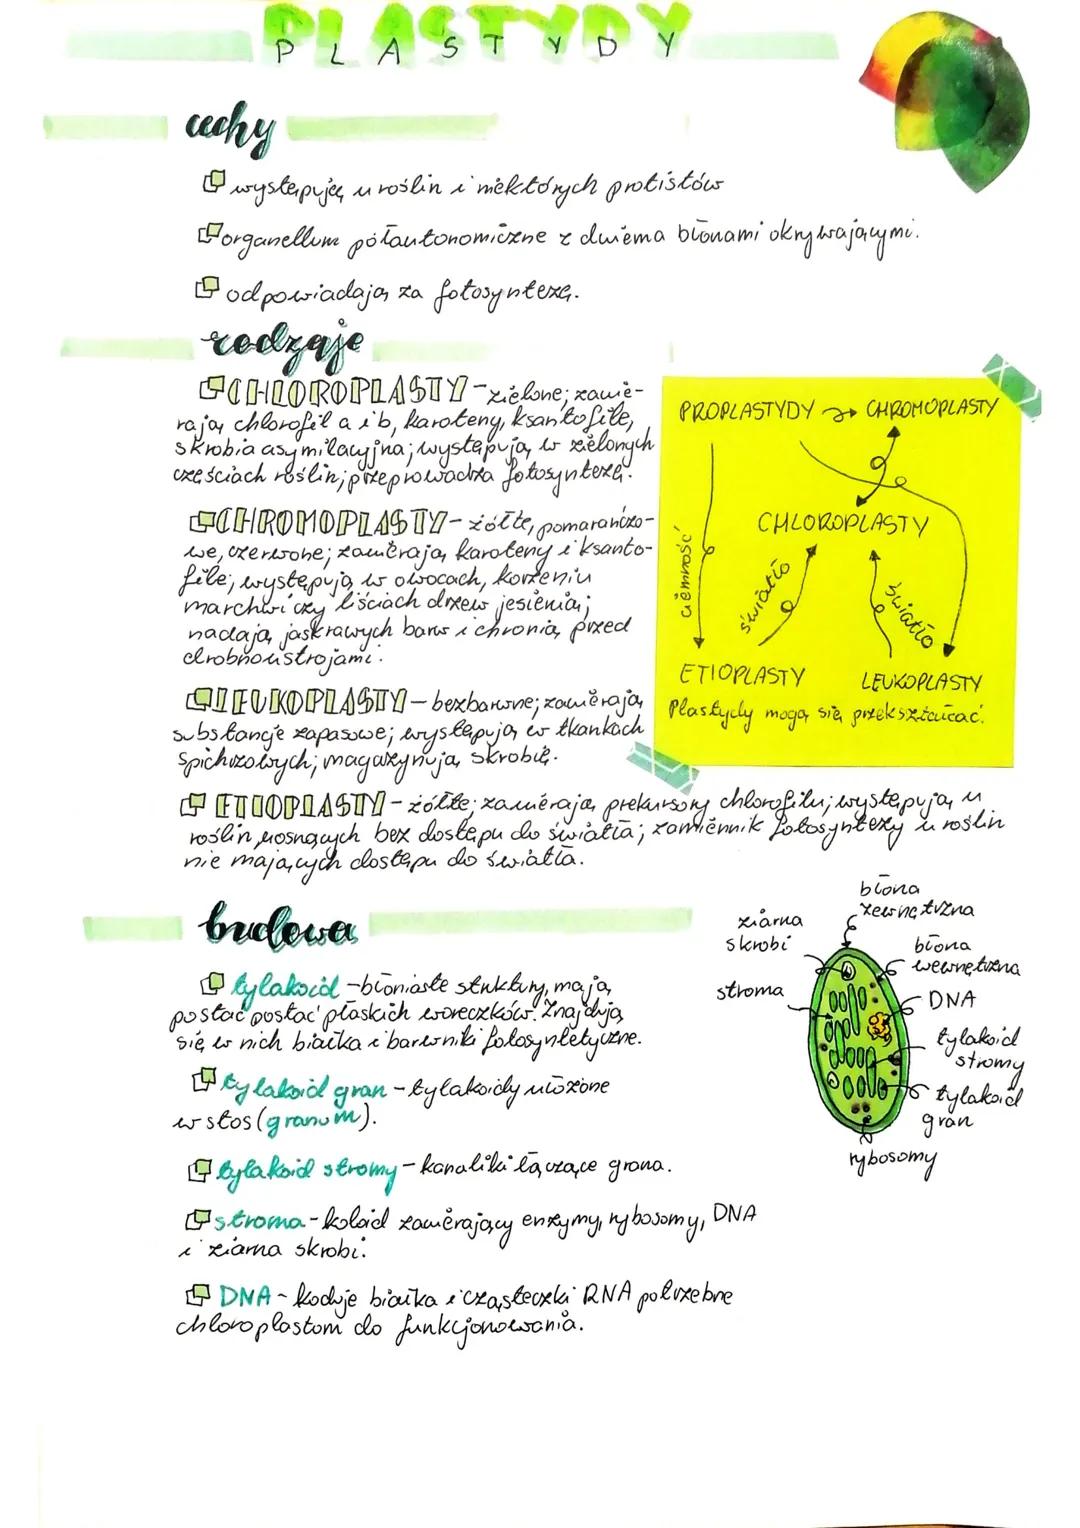 PLASTYDY
cechy
występują u roślin i niektórych protistów
organellum półautonomiczne z dwiema błonami okrywającymi.
odpowiadają za fotosyntezę.
rodzaje
CHLOROPLASTY - zielone; zawie-
rają chlorofil a i b, karoteny, ksantofile,
skrobia asymilacyjna; występują w zielonych
częściach roślin; przeprowadza fotosyntezę.
CHROMOPLASTY - żółte, pomarańczo-
we, czerwone; zawierają karoteny i ksanto-
file; występują w owocach, korzeniu
marchwi czy liściach drzew jesienią;
nadają jaskrawych barw i chronią przed
drobnoustrojami.
LEUKOPLASTY - bezbarwne; zawierają
substancje zapasowe; występują w tkankach
spichrzowych; magazynują skrobię.
ETIOPLASTY - żółte; zawierają prekursory chlorofilu; występują u
roślin rosnących bez dostępu do światła; zamiennik fotosyntezy u roślin
nie mających dostępu do światła.
PROPLASTYDY → CHROMOPLASTY
CHLOROPLASTY
ciemność
światło
światło
ETIOPLASTY LEUKOPLASTY
Plastydy mogą się przekształcać.
budowa
tylakoid - błoniaste struktury, mają
postać postać płaskich woreczków. Znajdują
się w nich białka i barwniki fotosyntetyczne.
tylakoid gran - tylakoidy ułożone
w stos (granum).
tylakoid stromy - kanaliki łączące grana.
stroma - koloid zawierający enzymy, rybosomy, DNA
i ziarna skrobi.
DNA - koduje białka i cząsteczki RNA potrzebne
chloroplastom do funkcjonowania.
błona
zewnętrzna
ziarna
skrobi
błona
wewnętrzna
stroma
DNA
tylakoid
stromy
tylakoid
gran
rybosomy